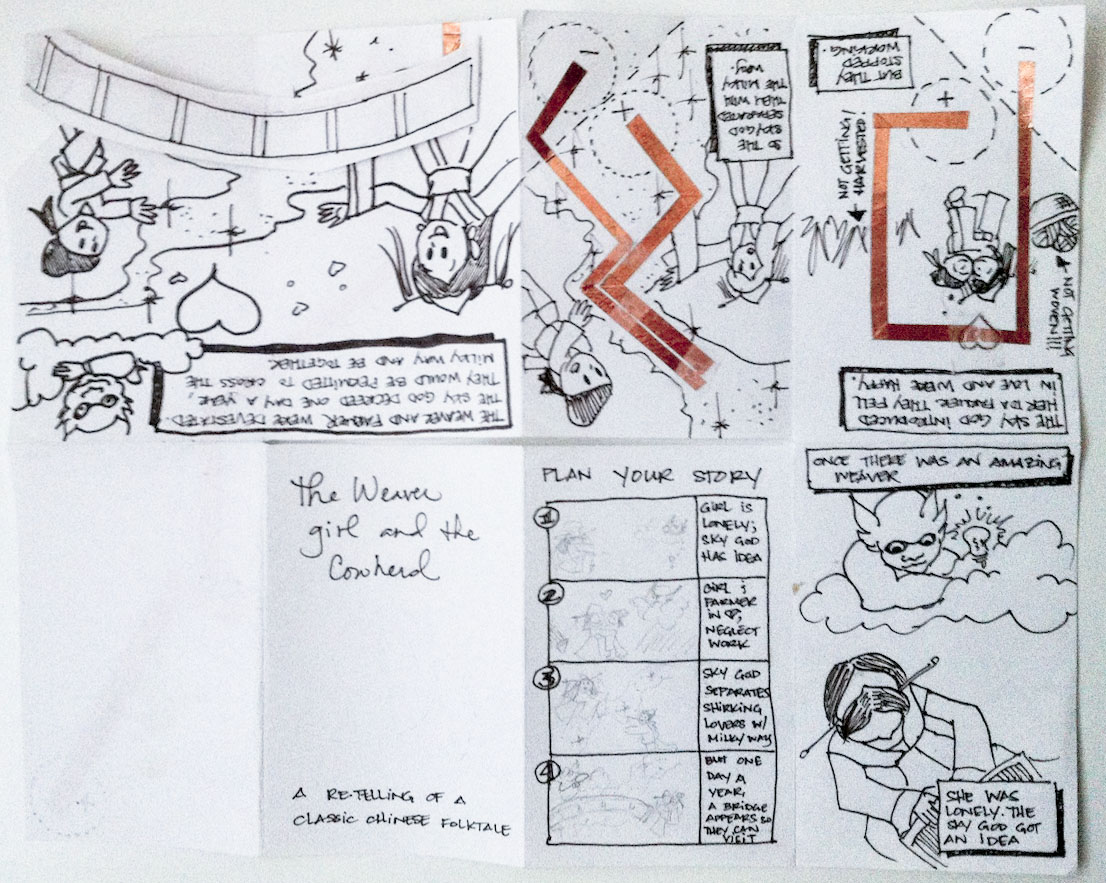 The Weaver
girl and the
Cowherd
A RE-TELLING OF A
CLASSIC CHINESE FOLKTALE
PLAN YOUR STORY
1
GIRL IS
LONELY;
SKY GOD
HAS IDEA
2
GIRL &
FARMER
IN ♡;
NEGLECT
WORK
3
SKY GOD
SEPARATES
SHIRKING
LOVERS W/
MILKY WAY
4
BUT ONE
DAY A
YEAR,
A BRIDGE
APPEARS SO
THEY CAN
VISIT
ONCE THERE WAS AN AMAZING
WEAVER
SHE WAS
LONELY. THE
SKY GOD GOT
AN IDEA
THE SKY GOD INTRODUCED
HER TO A FARMER. THEY FELL
IN LOVE AND WERE HAPPY.
NOT GETTING
WOVEN!!!
NOT GETTING
HARVESTED!
+
-
BUT THEY
STOPPED
WORKING.
SO THE
SKY GOD
SEPARATED
THEM WITH
THE MILKY
WAY.
+
-
THE WEAVER AND FARMER WERE DEVESTATED.
THE SKY GOD DECREED ONE DAY A YEAR,
THEY WOULD BE PERMITTED TO CROSS THE
MILKY WAY AND BE TOGETHER.